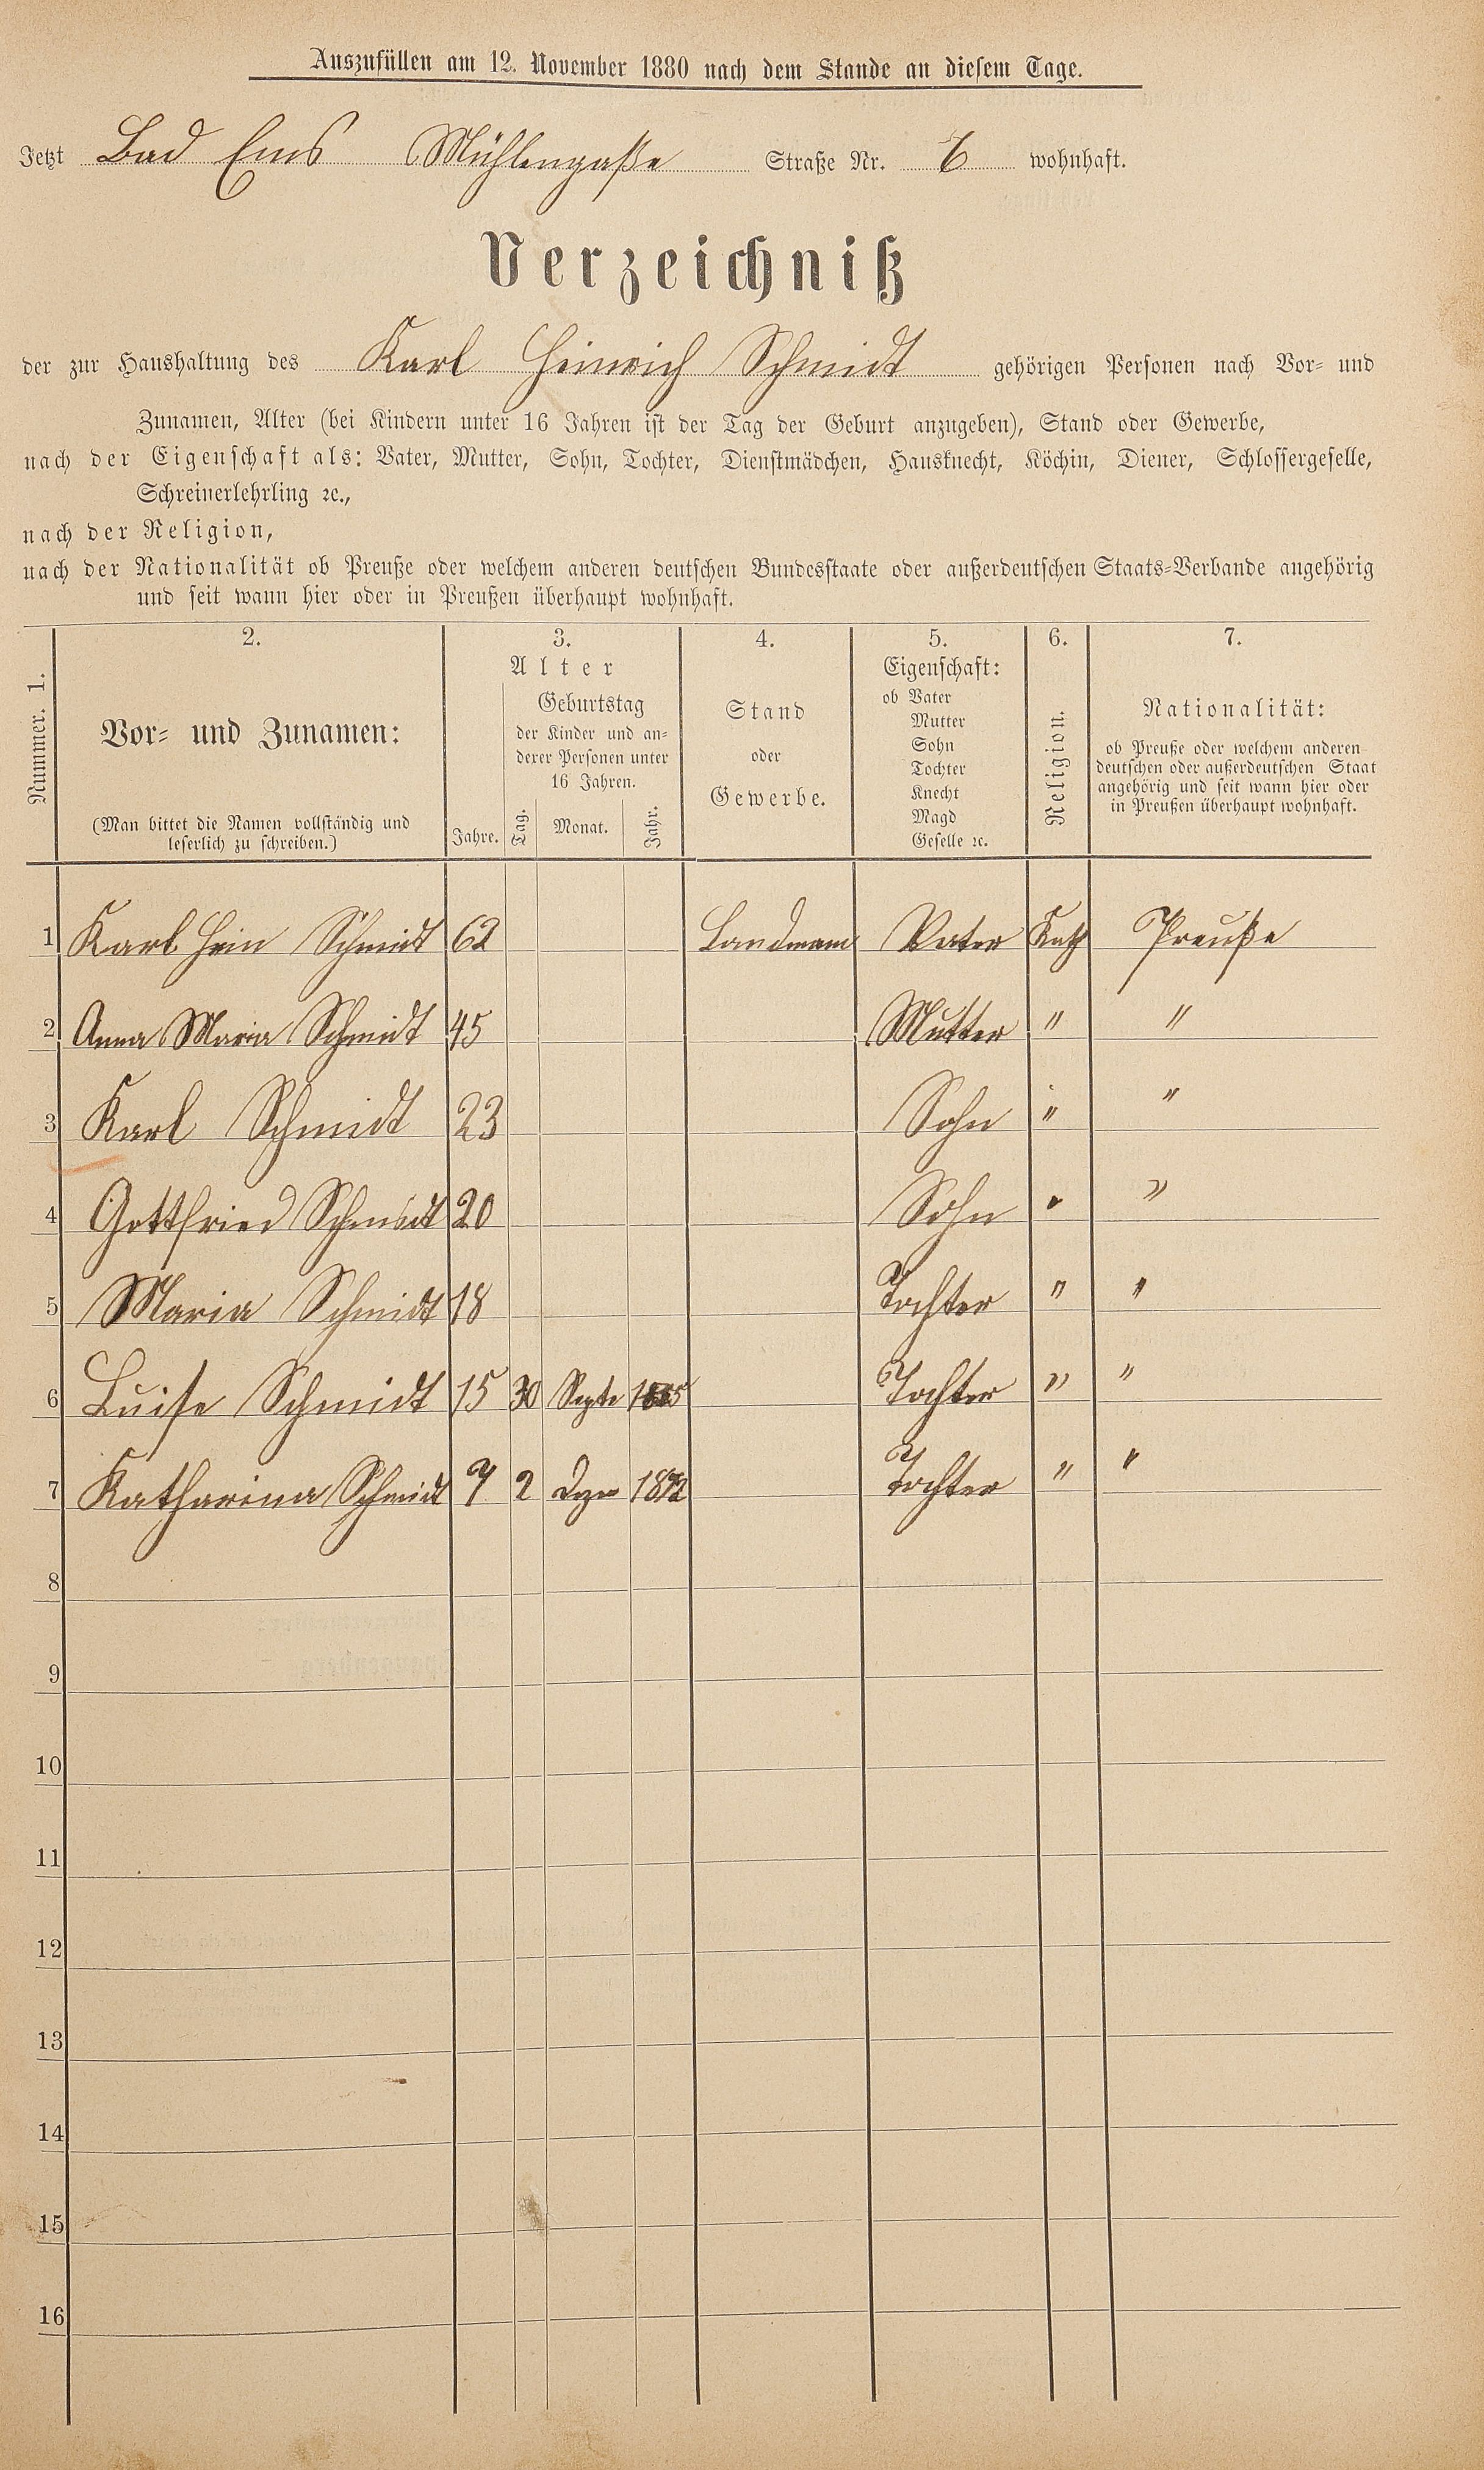 Auszufüllen am 12. November 1880 nach dem Stande an diesem Tage.
Jetzt Bad Ems Mühlengaße Straße Nr. 6 wohnhaft.
Verzeichniß
der zur Haushaltung des Karl Heinrich Schmidt gehörigen Personen nach Vor- und
Zunamen, Alter (bei Kindern unter 16 Jahren ist der Tag der Geburt anzugeben), Stand oder Gewerbe,
nach der Eigenschaft als: Vater, Mutter, Sohn, Tochter, Dienstmädchen, Hausknecht, Köchin, Diener, Schlossergeselle,
Schreinerlehrling ꝛc.,
nach der Religion,
nach der Nationalität ob Preuße oder welchem anderen deutschen Bundesstaate oder außerdeutschen Staats-Verbande angehörig
und seit wann hier oder in Preußen überhaupt wohnhaft.
Nummer. 1.
2.
Vor- und Zunamen:
(Man bittet die Namen vollständig und
leserlich zu schreiben.)
3.
Alter
Jahre.
Geburtstag
der Kinder und an-
derer Personen unter
16 Jahren.
Tag.
Monat.
Jahr.
4.
Stand
oder
Gewerbe.
5.
Eigenschaft:
ob Vater
Mutter
Sohn
Tochter
Knecht
Magd
Geselle ꝛc.
6.
Religion.
7.
Nationalität:
ob Preuße oder welchem anderen
deutschen oder außerdeutschen Staat
angehörig und seit wann hier oder
in Preußen überhaupt wohnhaft.
1 Karl Hein Schmidt 62 Landmann Vater Kath Preuße
2 Anna Maria Schmidt 45 Mutter " "
3 Karl Schmidt 23 Sohn " "
4 Gottfried Schmidt 20 Sohn " "
5 Maria Schmidt 18 Tochter " "
6 Luise Schmidt 15 30 Septe 1865 Tochter " "
7 Katharina Schmidt 7 2 Dezm 1872 Tochter " "
8
9
10
11
12
13
14
15
16